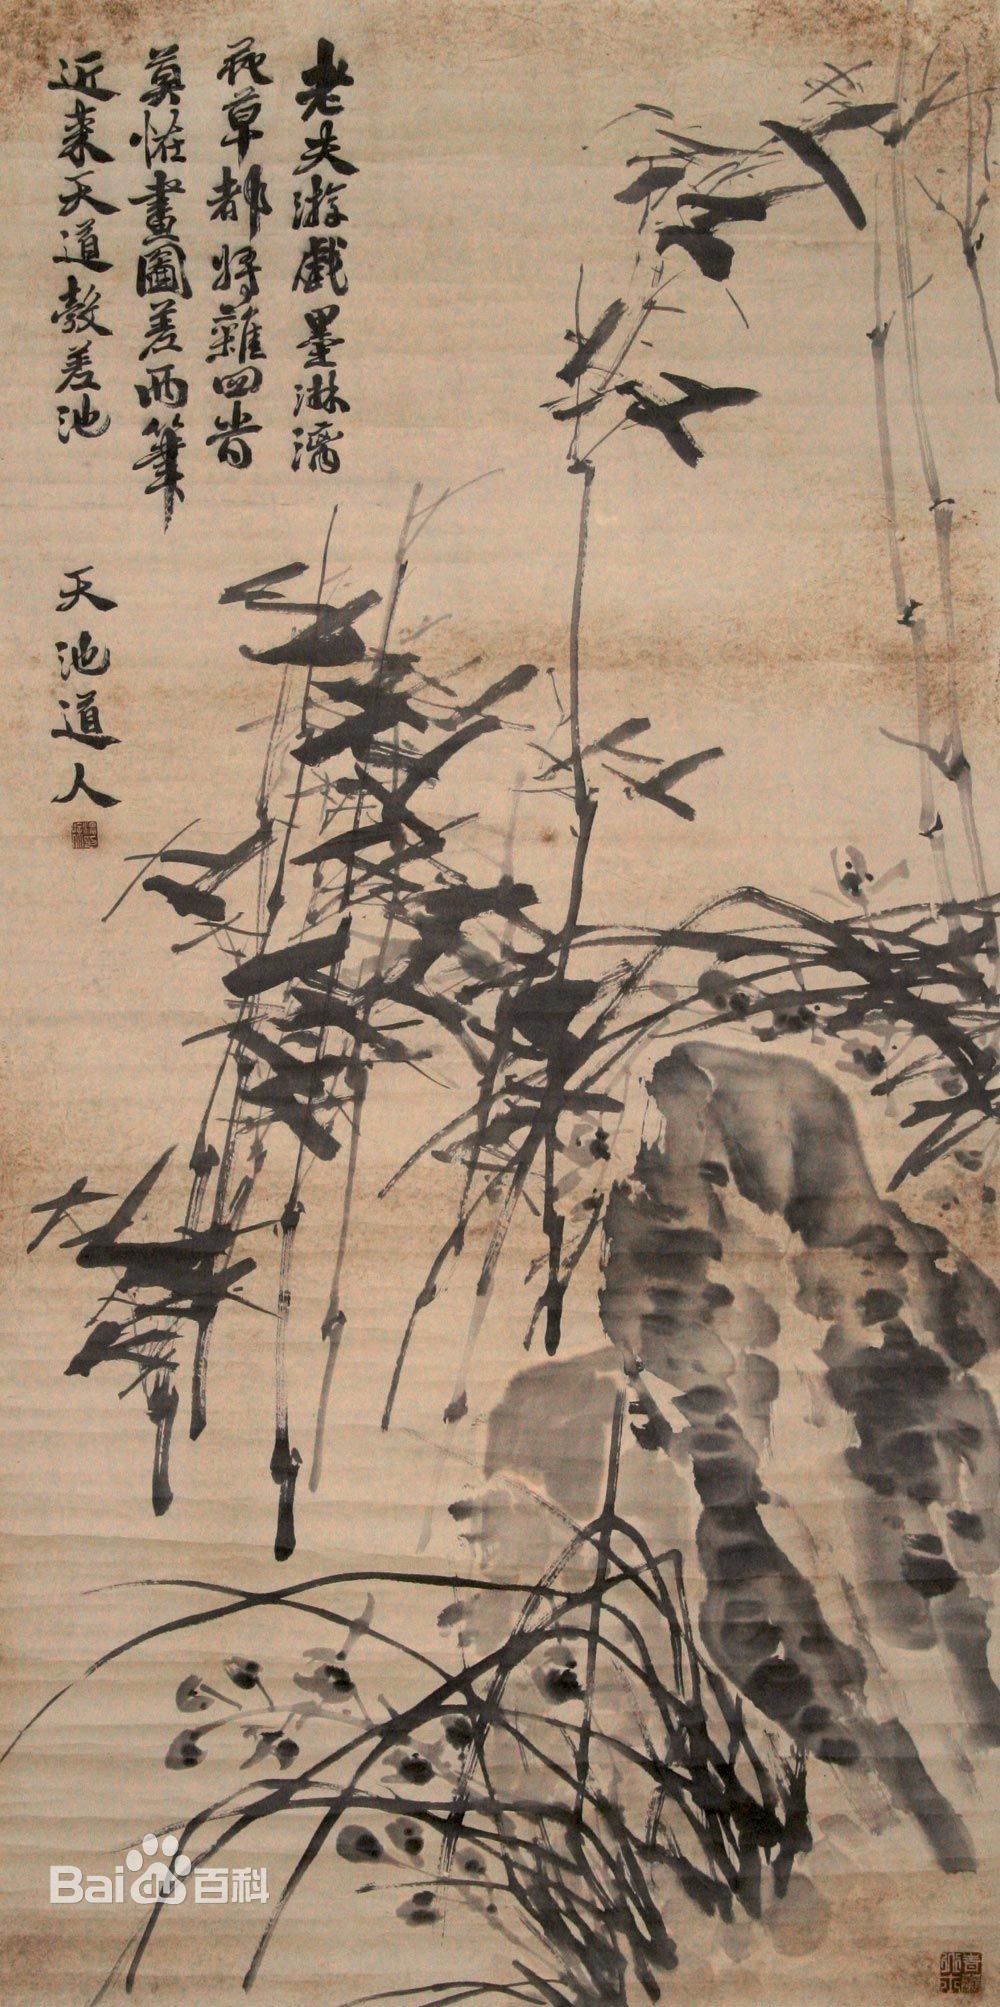 老夫游戲墨淋漓
花草都將雜四昔
莫恠畫圖差兩筆
近来天道彀差池
天池道人
Bai百科